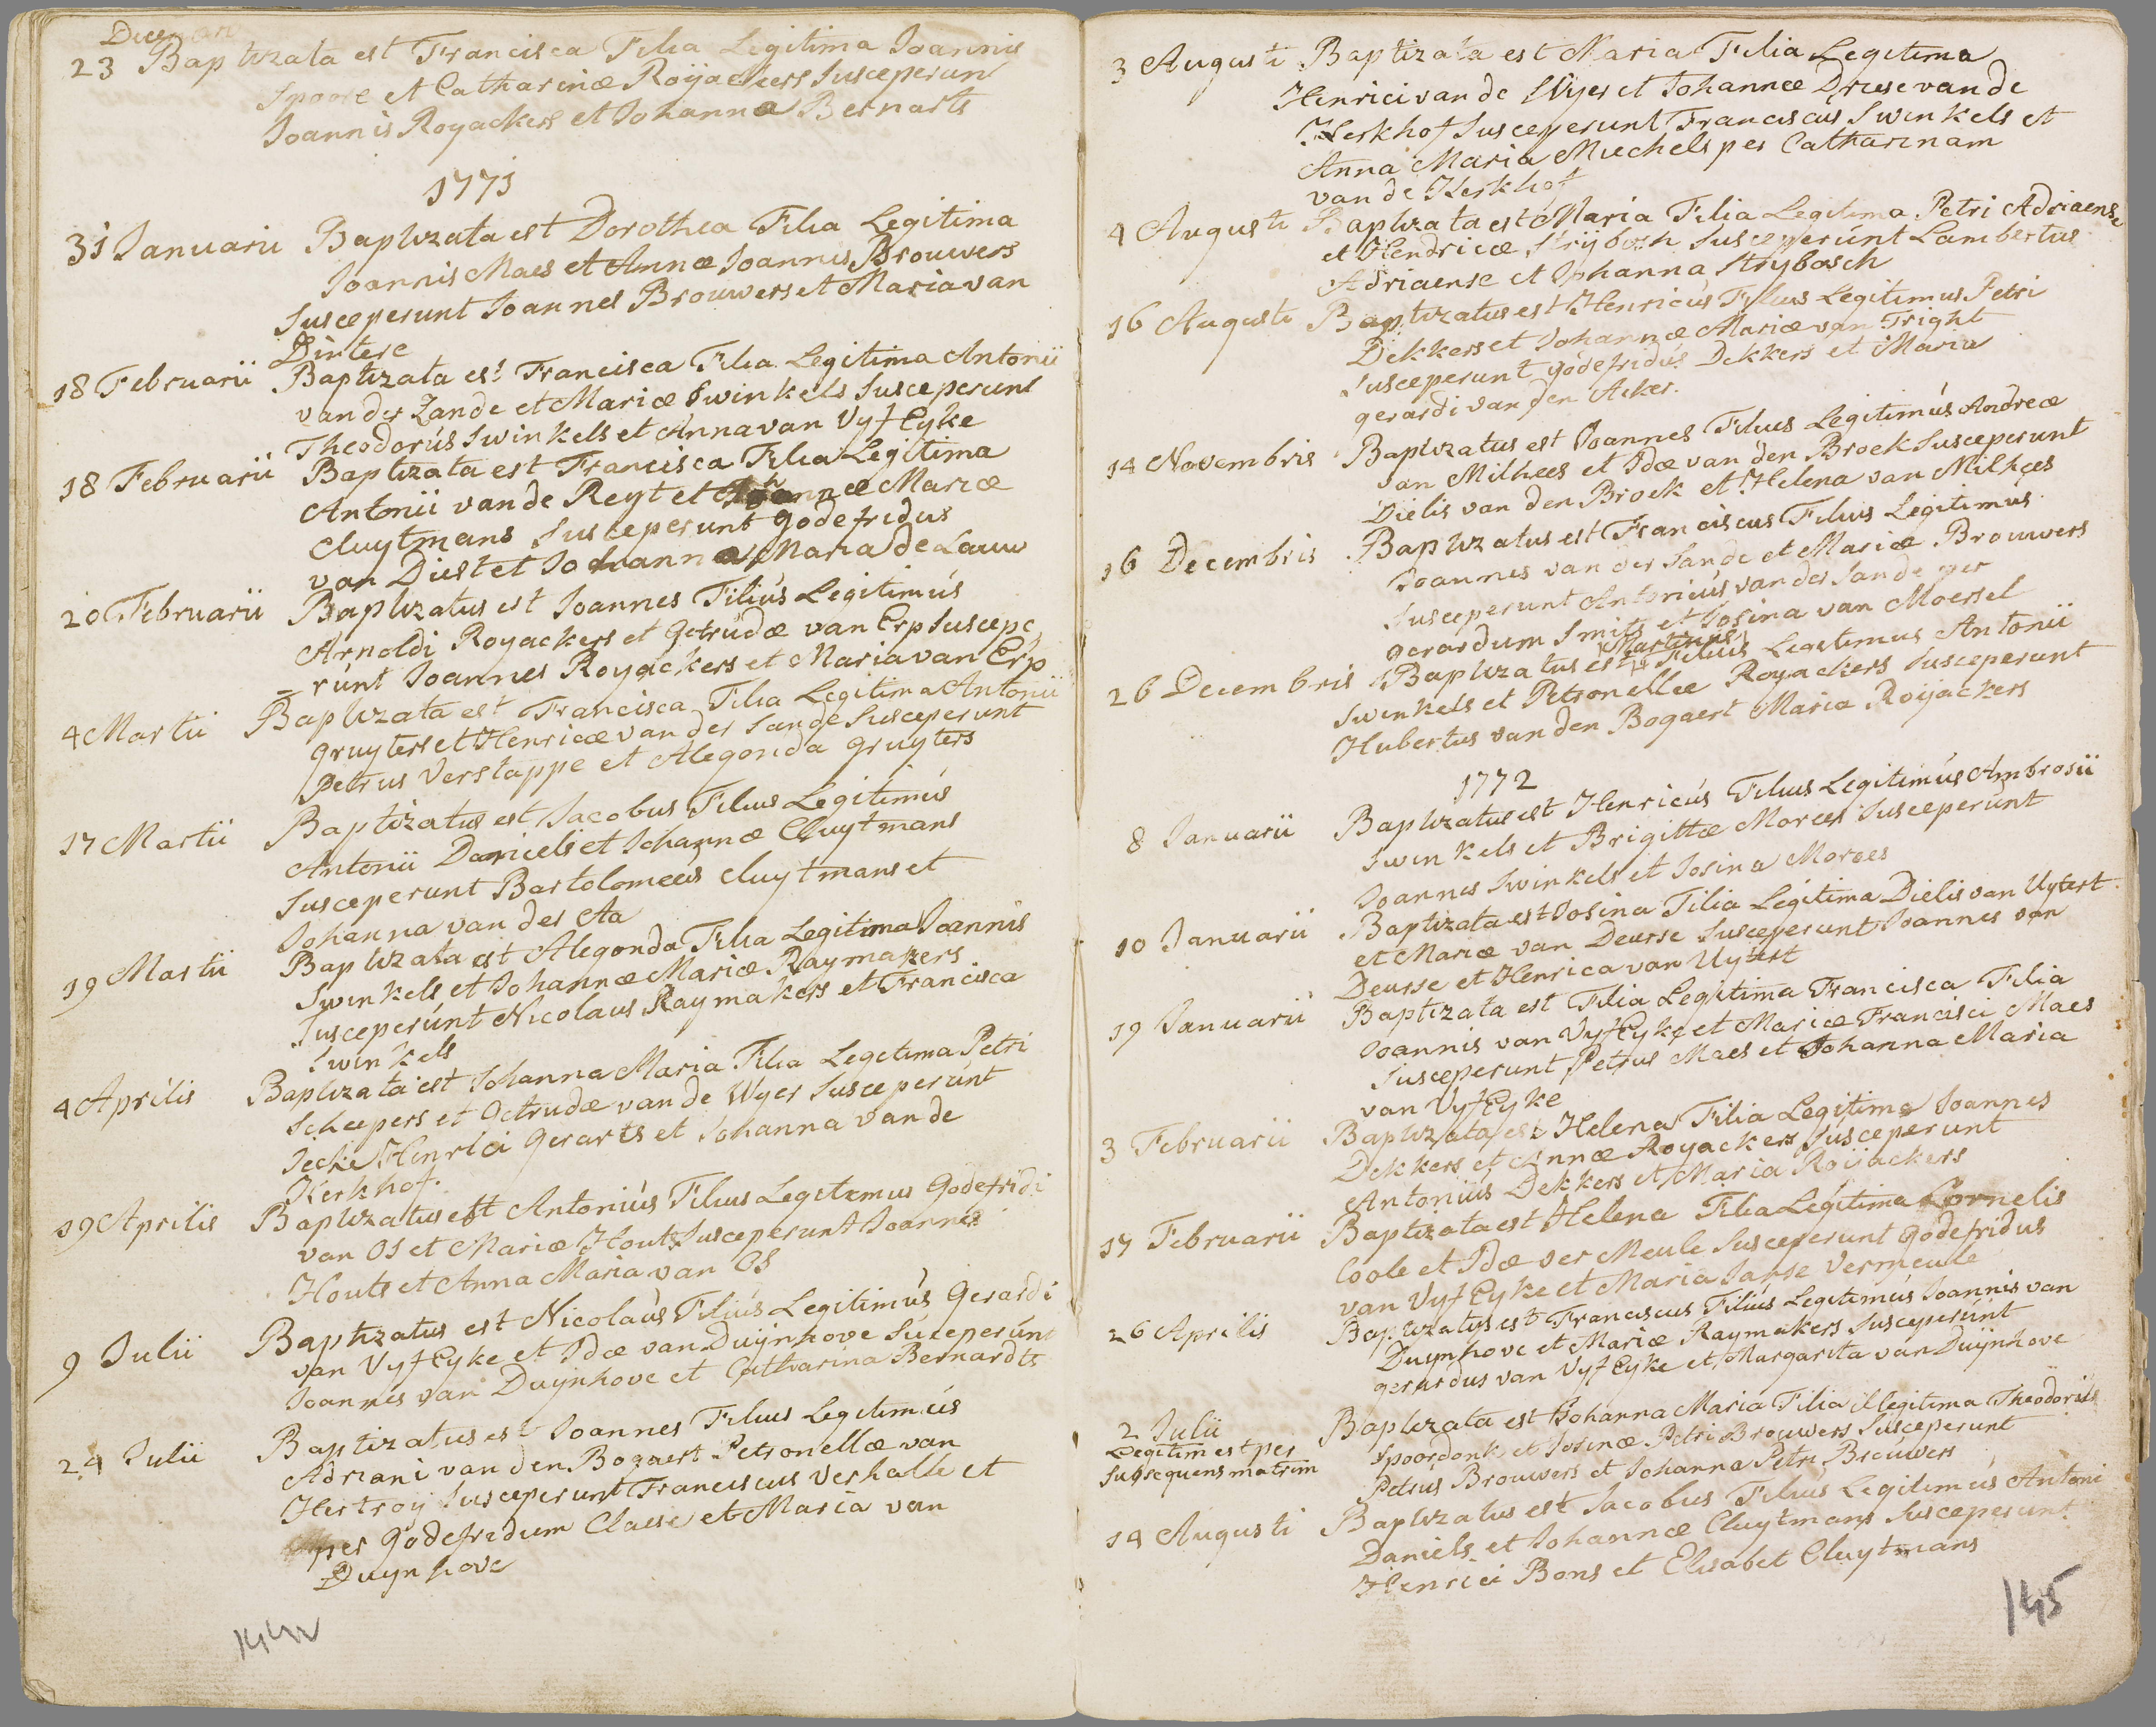 23 Baptizata est Francisca Filia Legitima Joannis
Spoore et Catharinæ Roijackers Susceperunt
Joannis Royackers et Johanna Bernarts
1771
31 Januarii Baptizata est Dorothea Filia Legitima
Joannis Maes et Annæ Joannis Brouwers
Susceperunt Joannes Brouwers et Maria van
Dintere
18 Februarii Baptizata est Francisca Filia Legitima Antonii
van der Zande et Mariæ Swinkels Susceperunt
Theodorús Swinkels et Anna van Vyf Eyke
18 Februarii Baptizata est Francisca Filia Legitima
Antonii van de Reyt et Johannæ Mariæ
Cluytmans Susceperunt godefridus
van Diest et Johanna Maria de Laauw
20 Februarii Baptizatus est Joannes Filiús Legitimús
Arnoldi Royackers et Getrudæ van Erp Suscepe
= rúnt Joannes Royackers et Maria van Erp
4 Martii Baptizata est Francisca Filia Legitima Antonii
gruyters et Henricæ van der Sande Susceperunt
Petrus Verstappe et Alegonda gruyters
17 Martii Baptizatus est Jacobus Filius Legitimús
Antonii Daniels et Johannæ Cluytmans
Susceperunt Bartolomeus Cluytmans et
Johanna van der Aa
19 Martii Baptizata est Alegonda Filia Legitima Joannis
Swinkels et Johannæ Mariæ Raymakers
Susceperúnt Nicolaus Raymakers et Francisca
Swinkels
4 Aprilis Baptizata est Johanna Maria Filia Legetima Petri
Scheepers et Getrudæ van de Wyer Susceperúnt
Henrici Gerarts et Johanna van de
Kerkhof.
19 Aprilis Baptizatus est Antoniús Filius Legetemus Godefridi
van Os et Mariæ Houts Susceperunt Joannes
Houts et Anna Maria van Os
9 Julii Baptizatus est Nicolaús Filiús Legitimús Gerardi
van Vyf Eyke et Idæ van Duijnhove Suceperúnt
Joannes van Duynhove et Catharina Bernardts
24 Julii Baptizatus est Joannes Filius Legitimús
Adriani van den Bogaert Petronellæ van
Hertroy Susceperunt Franciscus Verhalle et
per Godefridum Claese et Maria van
Duynhove
144
3 Augusti Baptizata est Maria Filia Legetima
Henrici van de Wyer et Johannæ Driese van de
Kerkhof Susceperunt Franciscus Swinkels et
Anna Maria Muchels per Catharinam
van de Kerkhof
4 Augusti Baptizata est Maria Filia Legetima Petri Adriaense
et Hendricæ Strijbosh Susceperúnt Lambertus
Adriaense et Johanna Strybosch
16 Augusti Baptizatus est Henricus Filius Legitimus Petri
Dekkers et Johannæ Mariæ van Tright
Susceperunt godefridús Dekkers et Maria
gerardi van den Acker.
14 Novembris Baptizatus est Joannes Filius Legitimús Andreæ
van Milhees et Idæ van den Broek Susceperunt
Dielis van den Broek et Helena van Milhees
16 Decembris Baptizatus est Franciscus Filius Legitimus
Joannes van der Sande et Mariæ Brouwers
Susceperunt Antoniús van der Sande per
gerardum Smits et Josina van Moersel
Martinus
26 Decembris Baptizatus est Filius Legetimus Antonii
Swinkels et Petronellæ Royackers Susceperunt
Hubertus van den Bogaert Maria Roijackers
1772
8 Januarii Baptizatus est Henricús Filius Legitimús Ambrosii
Swinkels et Brigittæ Morees Susceperúnt
Joannes Swinkels et Josina Morees
10 Januarii Baptizata est Josina Filia Legitima Dielis van Uytert
et Mariæ van Deurse Susceperunt Joannes van
Deurse et Henrica van Uytert
19 Januarii Baptizata est Filia Legitima Francisca Filia
Joannis van Vyf Eyke et Mariæ Francisci Maes
Susceperunt Petrus Maes et Johanna Maria
van Vyf Eyke
3 Februarii Baptizata est Helena Filia Legitima Joannes
Dekkers et Annæ Royackers Susceperunt
Antoniús Dekkers et Maria Roijackers
17 Februarii Baptizata est Helena Filia Legitima Cornelis
Coole et Idæ ver Meule Susceperunt godefridus
van Vyf Eyke et Maria Janse Vermeule
26 Aprilis Baptizatus est Franciscus Filiús Legetimús Joannis van
Duynhove et Mariæ Raymakers Susceperúnt
gerardus van Vyf Eyke et Margarita van Duijnhove
2 Julii Baptizata est Johanna Maria Filia illegitima Theodorús
Legitim est per Spoordonk et Josinæ Petri Brouwers Susceperunt
Subsequens matrim Petrus Brouwers et Johanna Petri Brouwers
14 Augusti Baptizatus est Jacobus Filius Legitimus Antoni
Daniels et Johannæ Cluytmans Susceperunt
Henrici Bons et Elisabet Cluytmans
145